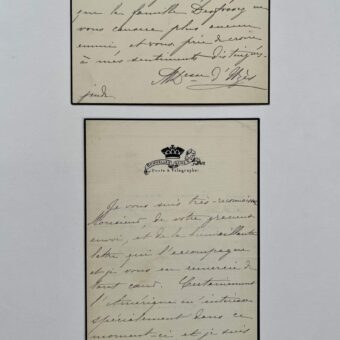 que la famille
vous cause plus aucun
ennui et vous prie de croire
à mes sentiments distingués
Dsse d'Uzès
Poste & Télégraphe
Je vous suis très-reconnaissante
Monsieur de votre gracieux
envoi, et de la bienveillante
lettre qui l'accompagne
et je vous en remercie de
tout cœur. Certainement
l'Amérique m'intéresse
spécialement dans ce
moment-ci et je suis